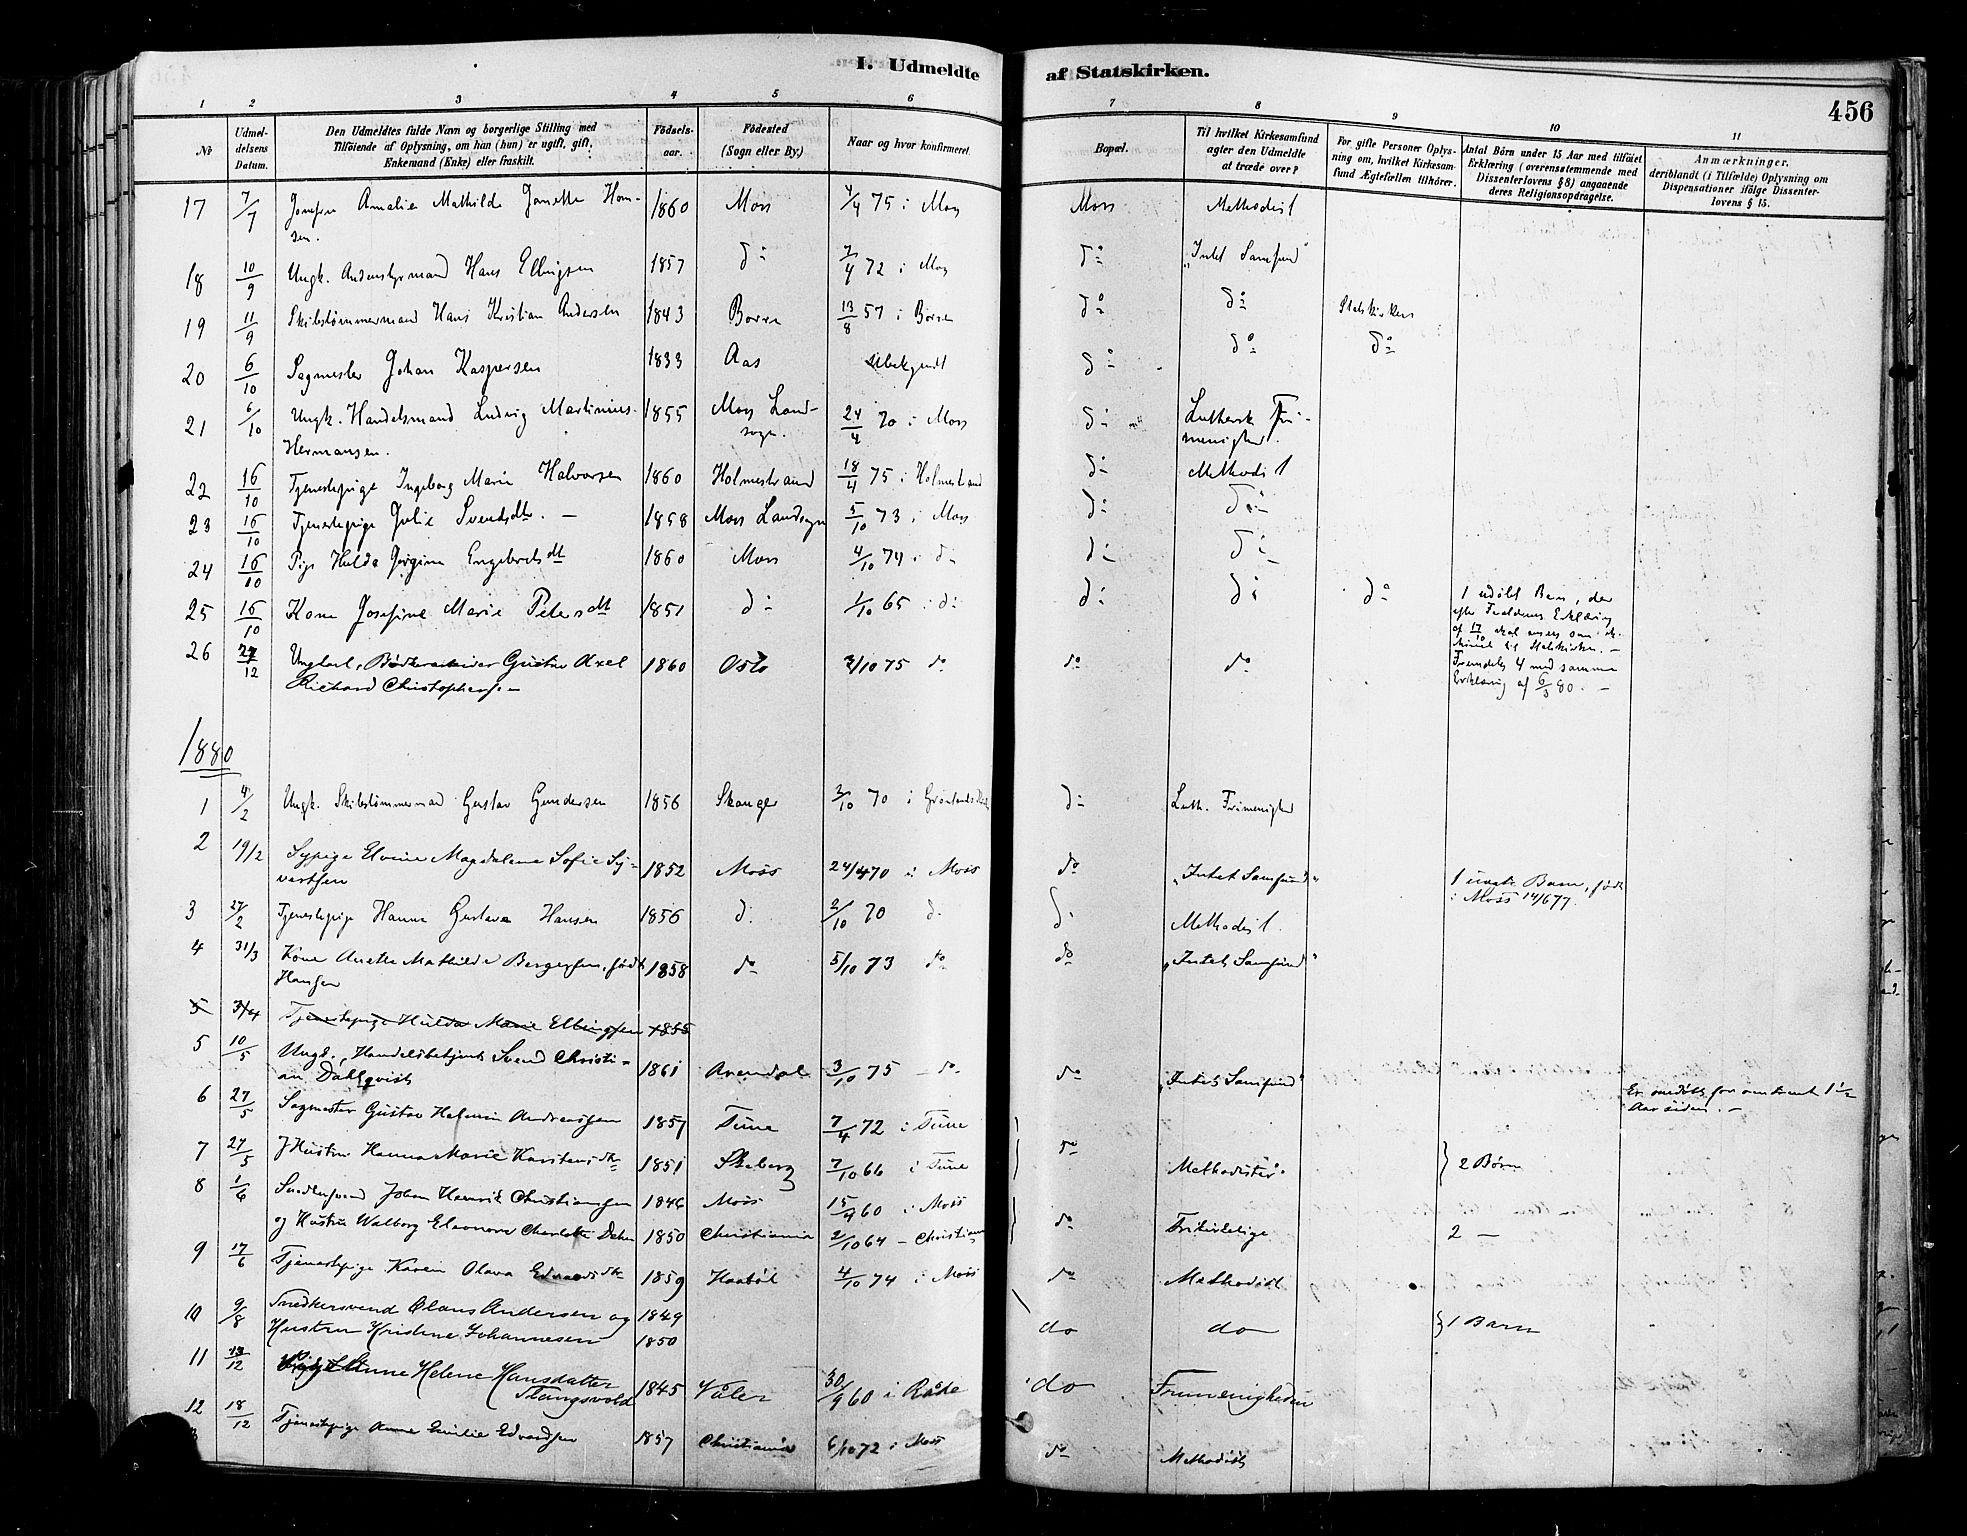 I. Udmeldte af Statskirken.
456
1 2 3 4 5 6 7 8 9 10 11
No
Udmel-
delsens
Datum.
Den Udmeldtes fulde Navn og borgerlige Stilling med
Tilføiende af Oplysning, om han (hun) er ugift, gift,
Enkemand (Enke) eller fraskilt.
Fødsels-
aar.
Fødested
(Sogn eller By.)
Naar og hvor konfirmeret.
Bopæl.
Til hvilket Kirkesamfund
agter den Udmeldte
at træde over?
For gifte Personer Oplys-
ning om, hvilket Kirkesam-
fund Ægtefællen tilhører.
Antal Börn under 15 Aar med tilføiet
Erklæring (overensstemmende med
Dissenterlovens § 8) angaaende
deres Religionsopdragelse.
Anmærkninger,
deriblandt (i Tilfælde) Oplysning om
Dispensationer ifölge Dissenter-
lovens § 15.
17 7/7 Jomfru Amalie Mathilde Janette Hom- 1860 Moss 4/4 75 i Moss Moss Methodist
sen.
18 10/9 Ungk. Andenstyrmand Hans Ellingsen 1857 do 7/4 72 i Moss do "Intet Samfund"
19 11/9 Skibstømmermand Hans Kristian Andersen 1843 Borre 13/8 57 i Borre do do Statskirken
20 6/10 Sagmester Johan Kaspersen 1833 Aas ubekjendt do do do
21 6/10 Ungk. Handelsmand Ludvig Martinius 1855 Moss Land- 24/4 70 i Moss do Luthersk Fri-
Hermansen. sogn. menighed.
22 16/10 Tjenestepige Ingeborg Marie Halvorsen 1860 Holmestrand 18/4 75 i Holmestrand do Methodist
23 16/10 Tjenestepige Julie Svendsdtr. 1858 Moss Landsogn 5/10 73 i Moss do do
24 16/10 Pige Hulda Jørgine Engebretsdtt 1860 Moss 4/10 74 i do do do
25 16/10 Kone Josefine Marie Petersdtt 1851 do 1/10 65 i do do do do 1 udøbt Barn, der
efter Forældrenes Erklæring
af 17/10 skal ansees som ind-
lemmet i Statskirken.
26 27/12 Ungkarl, Gustav Axel 1860 Oslo 2/10 75 do do do Fremdeles 4 med samme
Richard Christophersen Erklæring af 6/3 80.
1880
1 4/2 Ungk. Skibstømmermand Gustav Gundersen 1856 Skauger 3/10 70 i do Luth. Frimenighed
2 19/2 Sypige Elvine Magdalene Sofie Sy- 1852 Moss 24/4 70 i Moss do "Intet Samfund" 1 uægte Barn, født
vertsen i Moss 14/6 77.
3 27/2 Tjenestepige Hanna Gustava Hansen 1856 do 2/10 70 do do Methodist.
4 31/3 Kone Anette Mathilde Bergersen, født 1858 do 5/10 73 do do "Intet Samfund"
Hansen
5 3/4 Tjenestepige Hulda Marie Ellingsen 1855
5 10/5 Ungk., Handelsbetjent Svend Christi- 1861 Arendal 3/10 75 - do do "Intet Samfund"
an Dahlqvist
6 27/5 Sagmester Gustav Andreassen 1857 Tune 7/4 72 i Tune Er omdøbt for omtrent 1½
Aar siden.
7 27/5 Hustru Hanna Marie Karstensdtr 1851 Skeberg 7/10 66 i Tune do Methodister. 2 Børn
8 1/6 Snedkersvend Johan Henrik Christiansen 1846 Moss 15/4 60 i Moss
og Hustru Walborg Eleonora Charlotte Dehn 1850 Christiania 2/10 64 - Christiania do Frikirkelige 2 -
9 17/6 Tjenestepige Karen Olava Edvardsdtr 1859 Haabøl 4/10 74 i Moss do Methodist
10 9/8 Snedkersvend Claus Andersen og 1849
Hustru Kristine Johannesen 1850 do do 1 Barn
11 13/12 Pige Anne Helene Hansdatter 1845 Våler 30/9 60 i Råde do Frimenigheden
Stangsvold
12 18/12 Tjenestepige Anne Emilie Edvardsen 1857 Christiania 6/10 72 i Moss do Methodist